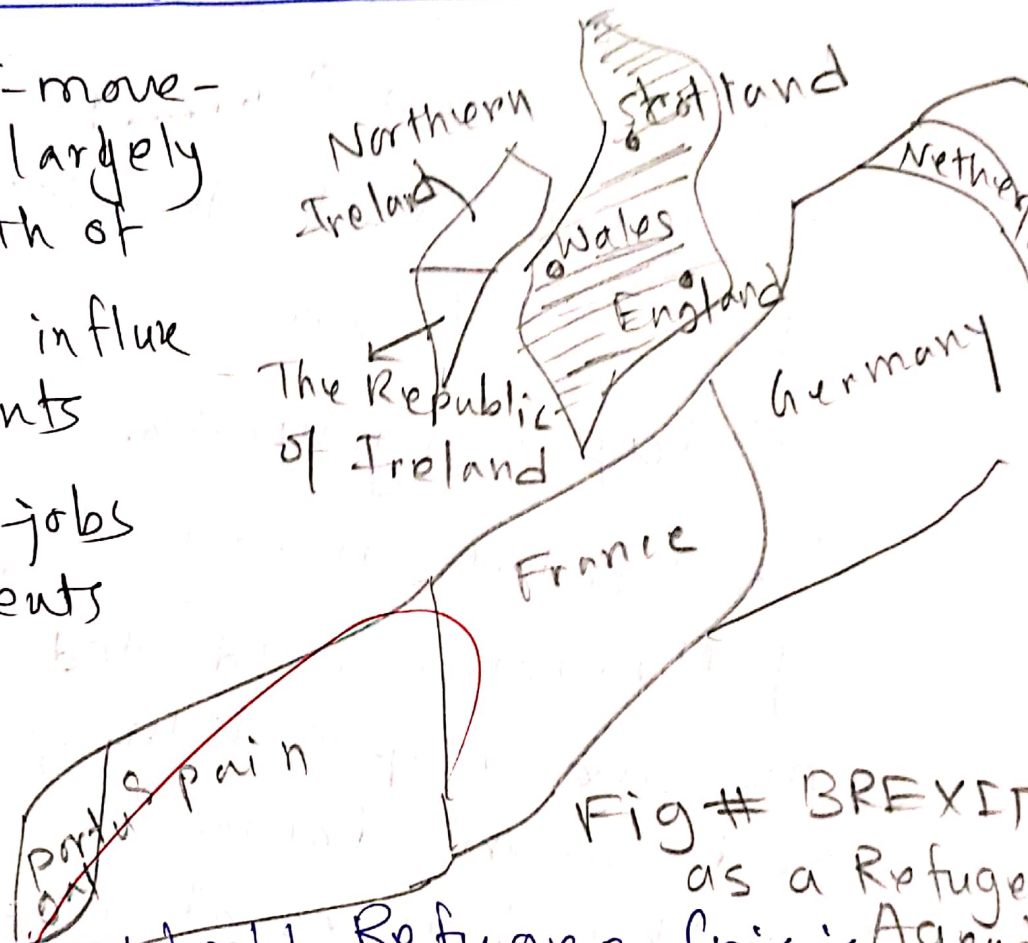 -move-
largely
th of
influx
nts
jobs
ents
Northern
Ireland
Scotland
Wales
England
The Republic
of Ireland
Nether
Germany
France
Spain
Portu
gal
Fig # BREXIT
as a Refuge
Refugee Crisis